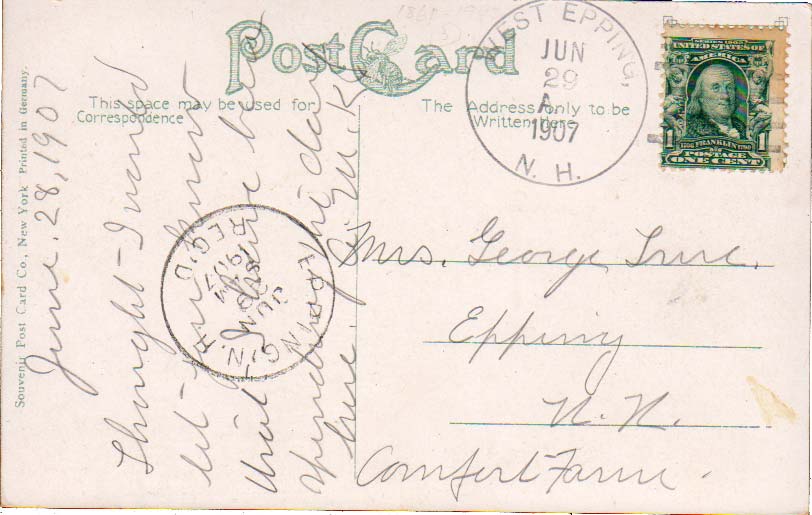 Post Card
This space may be used for
Correspondence
The Address only to be
Written Here
WEST EPPING,
JUN
29
A
1907
N. H.
SERIES 1902
UNITED STATES OF
AMERICA
1706 FRANKLIN 1790
1 1
POSTAGE
ONE CENT
Souvenir Post Card Co., New York Printed in Germany.
June. 28, 1907
Thought I would
let you know
that I have been
down
here. M. K.
EPPING N.H.
JUN
29
1907
REC'D
Mrs. George True.
Epping
N. H.
Comfort Farm.